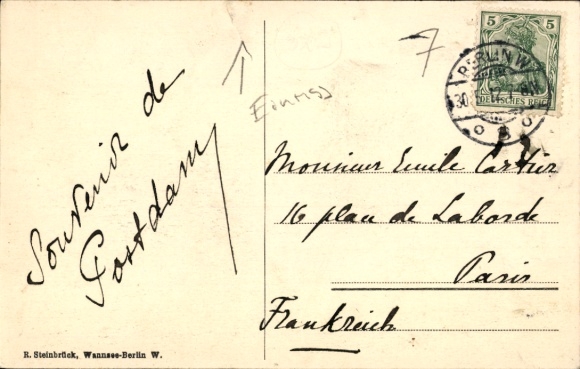 Souvenir de
Postdam
R. Steinbrück, Wannsee-Berlin W.
7
5 5
DEUTSCHES REICH
BERLIN W.
30
Monsieur Emile Cartier
16 place de Laborde
Paris
Frankreich